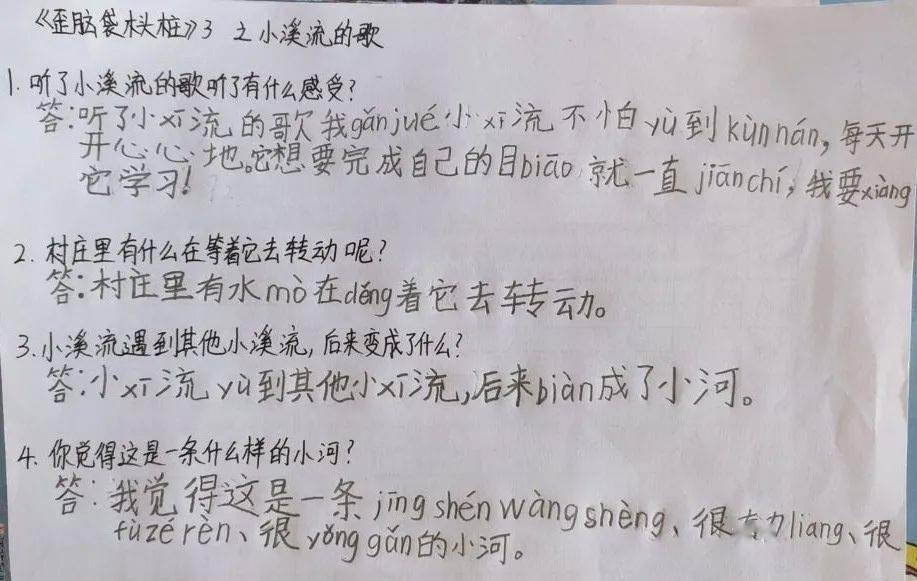 《歪脑袋木头桩》3 之小溪流的歌
1. 听了小溪流的歌听了有什么感受?
答:听了小xī流的歌我gǎnjué小xī流不怕yù到kùnnán,每天开
开心心地。它想要完成自己的目biāo就一直jiānchí,我要xiàng
它学习!
2. 村庄里有什么在等着它去转动呢?
答:村庄里有水mò在děng着它去转动。
3. 小溪流遇到其他小溪流,后来变成了什么?
答:小xī流yù到其他小xī流,后来biàn成了小河。
4. 你觉得这是一条什么样的小河?
答:我觉得这是一条jīng shén wàng shèng、很有力liang、很
fùzé rèn、很yǒng gǎn的小河。